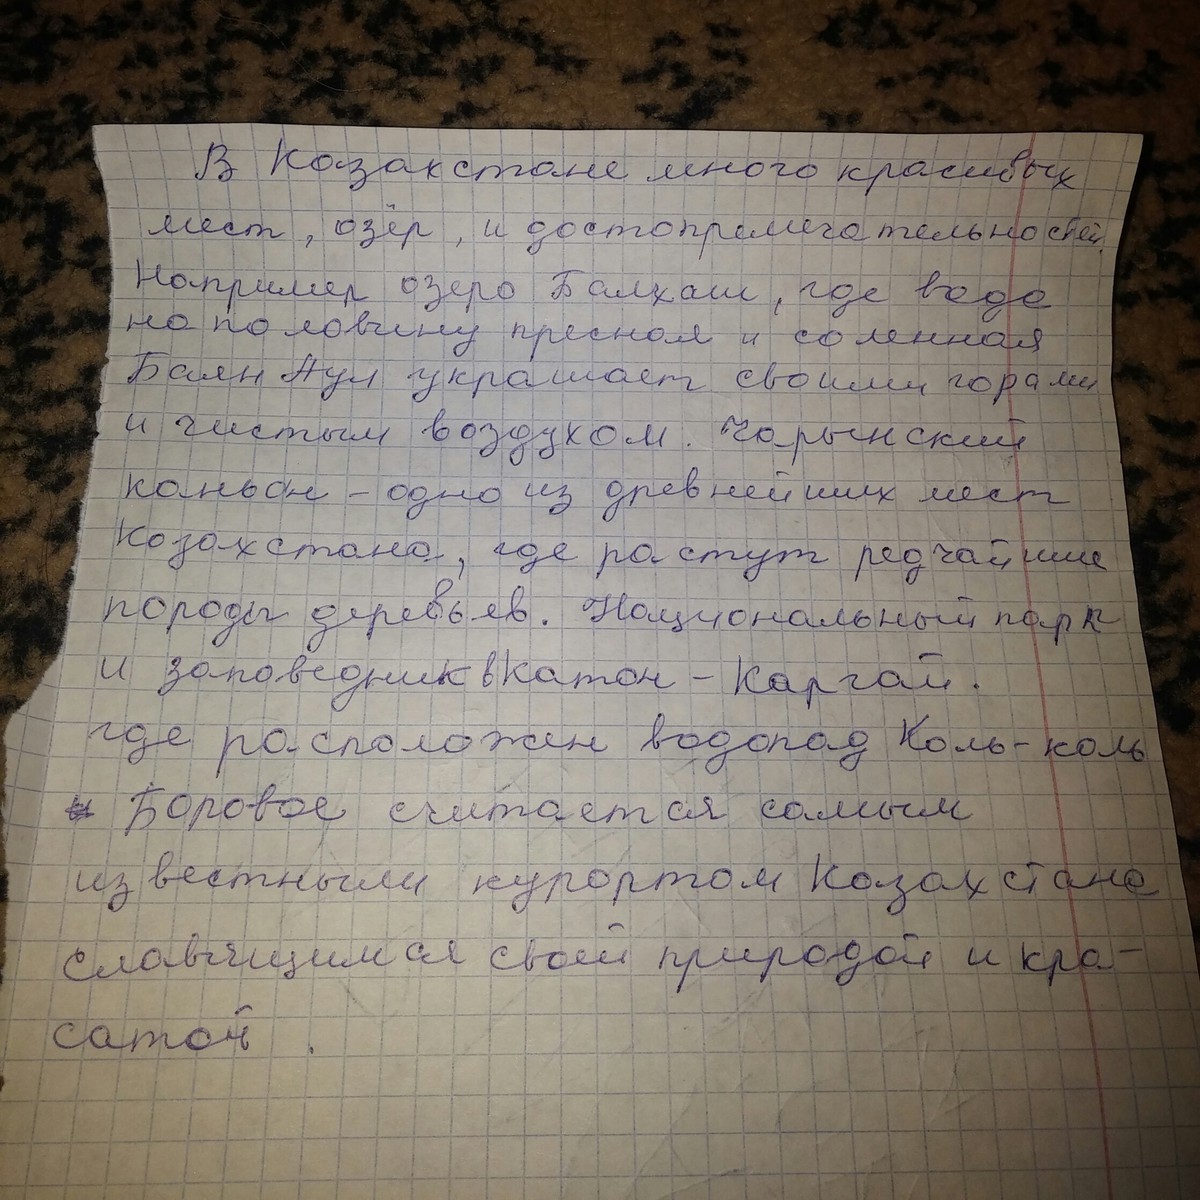 В Казакстане много красивых
мест, озёр, и достопремечательностей.
Например озеро Балхаш, где вода
на половину пресная и соленная
Баян Аул украшает своими горами
и чистым воздухом. Чарынский
каньон - одно из древнейших мест
Казахстана, где растут редчайшие
породы деревьев. Национальный парк
и заповедник в Катон - Каргай.
где расположен водопад Коль-коль
Боровое считается самым
известными курортом Казахстана
славящимся своей природой и кра-
сатой .